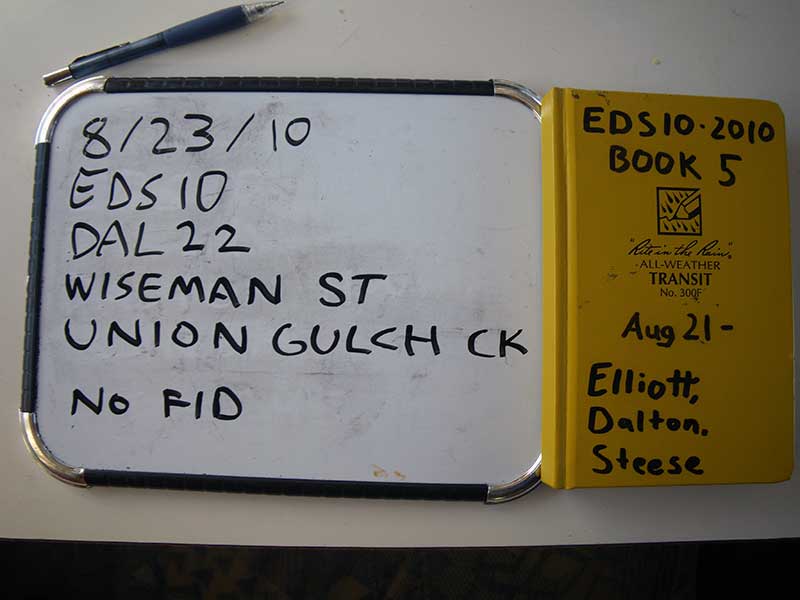 8/23/10
EDS10
DAL22
WISEMAN ST
UNION GULCH CK
No FID
EDS10·2010
BOOK 5
"Rite in the Rain"®
ALL-WEATHER
TRANSIT
No. 300F
Aug 21-
Elliott,
Dalton.
Steese